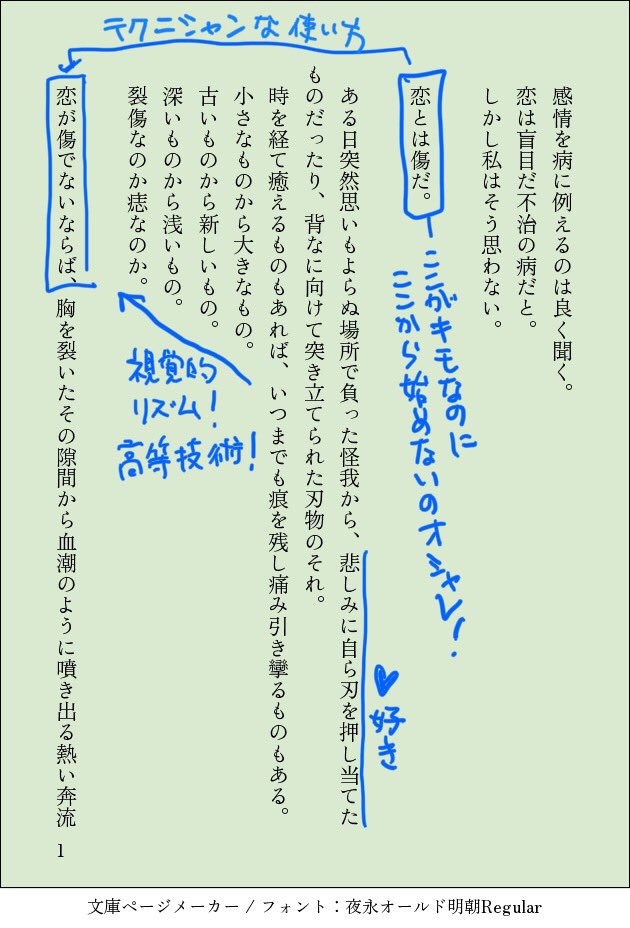 テクニシャンな使い方
感情を病に例えるのは良く聞く。
恋は盲目だ不治の病だと。
しかし私はそう思わない。
恋とは傷だ。
ここがキモなのに
ここから始めないのオシャレ!
ある日突然思いもよらぬ場所で負った怪我から、悲しみに自ら刃を押し当てた
ものだったり、背なに向けて突き立てられた刃物のそれ。
♥好き
時を経て癒えるものもあれば、いつまでも痕を残し痛み引き攣るものもある。
小さなものから大きなもの。
古いものから新しいもの。
深いものから浅いもの。
裂傷なのか痣なのか。
視覚的
リズム!
高等技術!
恋が傷でないならば、胸を裂いたその隙間から血潮のように噴き出る熱い奔流
1
文庫ページメーカー / フォント：夜永オールド明朝Regular